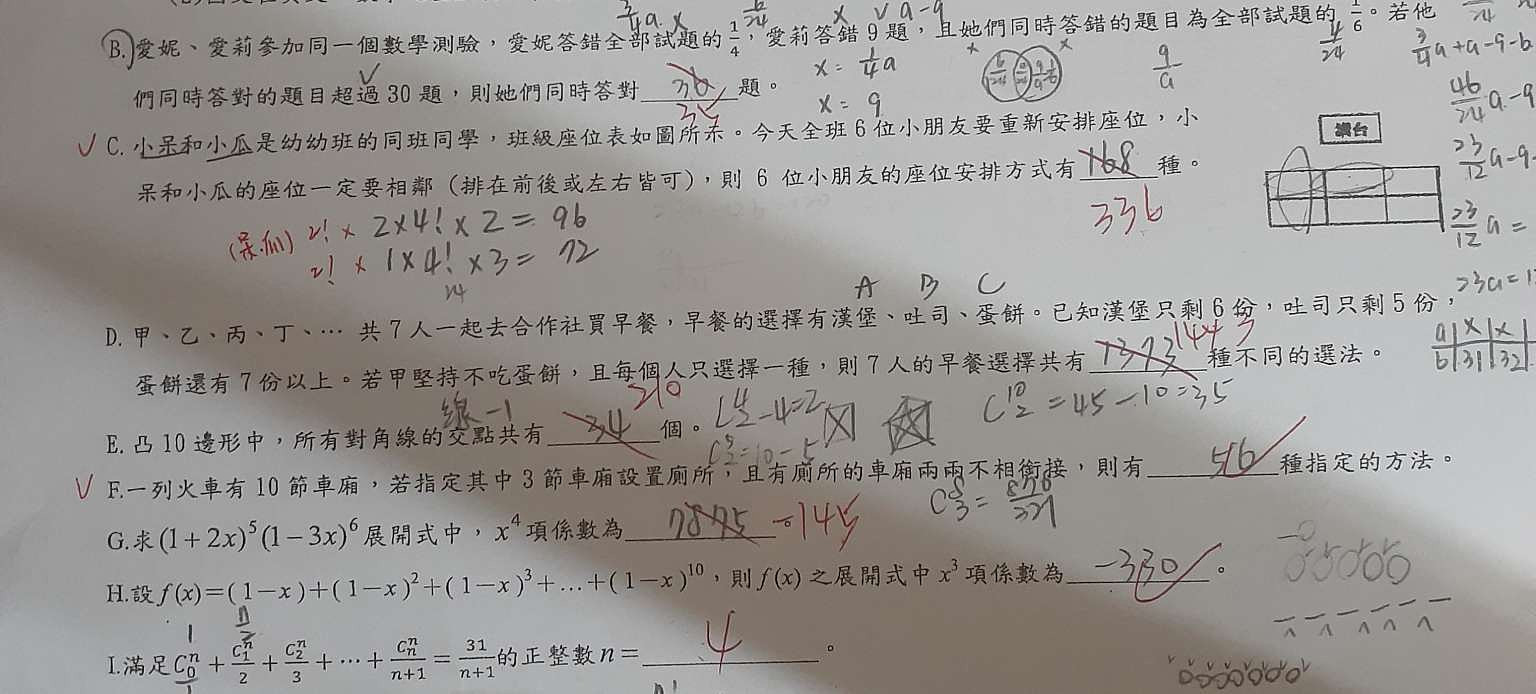 B. 愛妮、愛莉參加同一個數學測驗，愛妮答錯全部試題的 1/4，愛莉答錯 9 題，且她們同時答錯的題目為全部試題的 1/6。若他
們同時答對的題目超過 30 題，則她們同時答對 36 題。
35
x = 1/4 a
x = 9
9/a
3/4 a + a - 9 - b
C. 小呆和小瓜是幼幼班的同班同學，班級座位表如圖所示。今天全班 6 位小朋友要重新安排座位，小
呆和小瓜的座位一定要相鄰（排在前後或左右皆可），則 6 位小朋友的座位安排方式有 168 種。
336
講台
(呆.瓜) 2! × 2×4! × 2 = 96
2! × 1×4! × 3 = 72
24
23/12 a =
A B C
D. 甲、乙、丙、丁、… 共 7 人一起去合作社買早餐，早餐的選擇有漢堡、吐司、蛋餅。已知漢堡只剩 6 份，吐司只剩 5 份，
蛋餅還有 7 份以上。若甲堅持不吃蛋餅，且每個人只選擇一種，則 7 人的早餐選擇共有 1373 種不同的選法。
1443
210
線-1
E. 凸 10 邊形中，所有對角線的交點共有 34 個。
C 4 2 -4=2
C 5 2 =10-5
C 10 2 =45-10=35
F. 一列火車有 10 節車廂，若指定其中 3 節車廂設置廁所，且有廁所的車廂兩兩不相銜接，則有 56 種指定的方法。
C 8 3 =
G. 求 (1+2x)^5(1-3x)^6 展開式中，x^4 項係數為 7875 -145
H. 設 f(x)=(1-x)+(1-x)^2+(1-x)^3+…+(1-x)^10，則 f(x) 之展開式中 x^3 項係數為 -330。
I. 滿足 C_0^n/1 + C_1^n/2 + C_2^n/3 + ⋯ + C_n^n/(n+1) = 31/(n+1) 的正整數 n = 4。